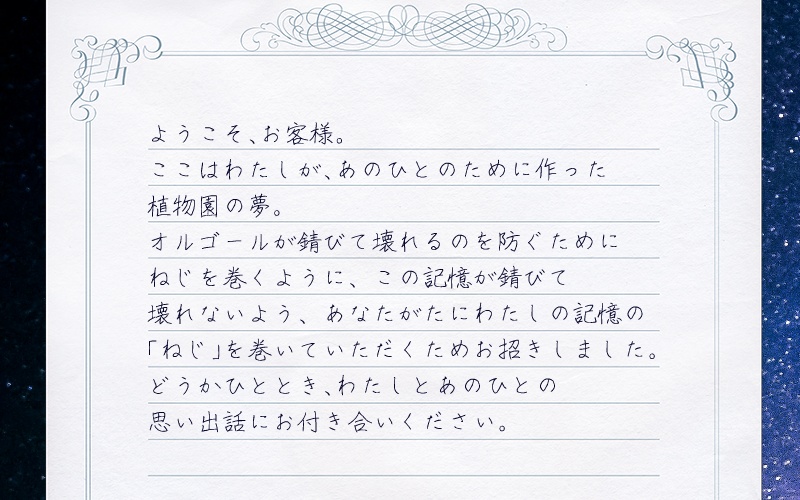 ようこそ、お客様。
ここはわたしが、あのひとのために作った
植物園の夢。
オルゴールが錆びて壊れるのを防ぐために
ねじを巻くように、この記憶が錆びて
壊れないよう、あなたがたにわたしの記憶の
「ねじ」を巻いていただくためお招きしました。
どうかひととき、わたしとあのひとの
思い出話にお付き合いください。